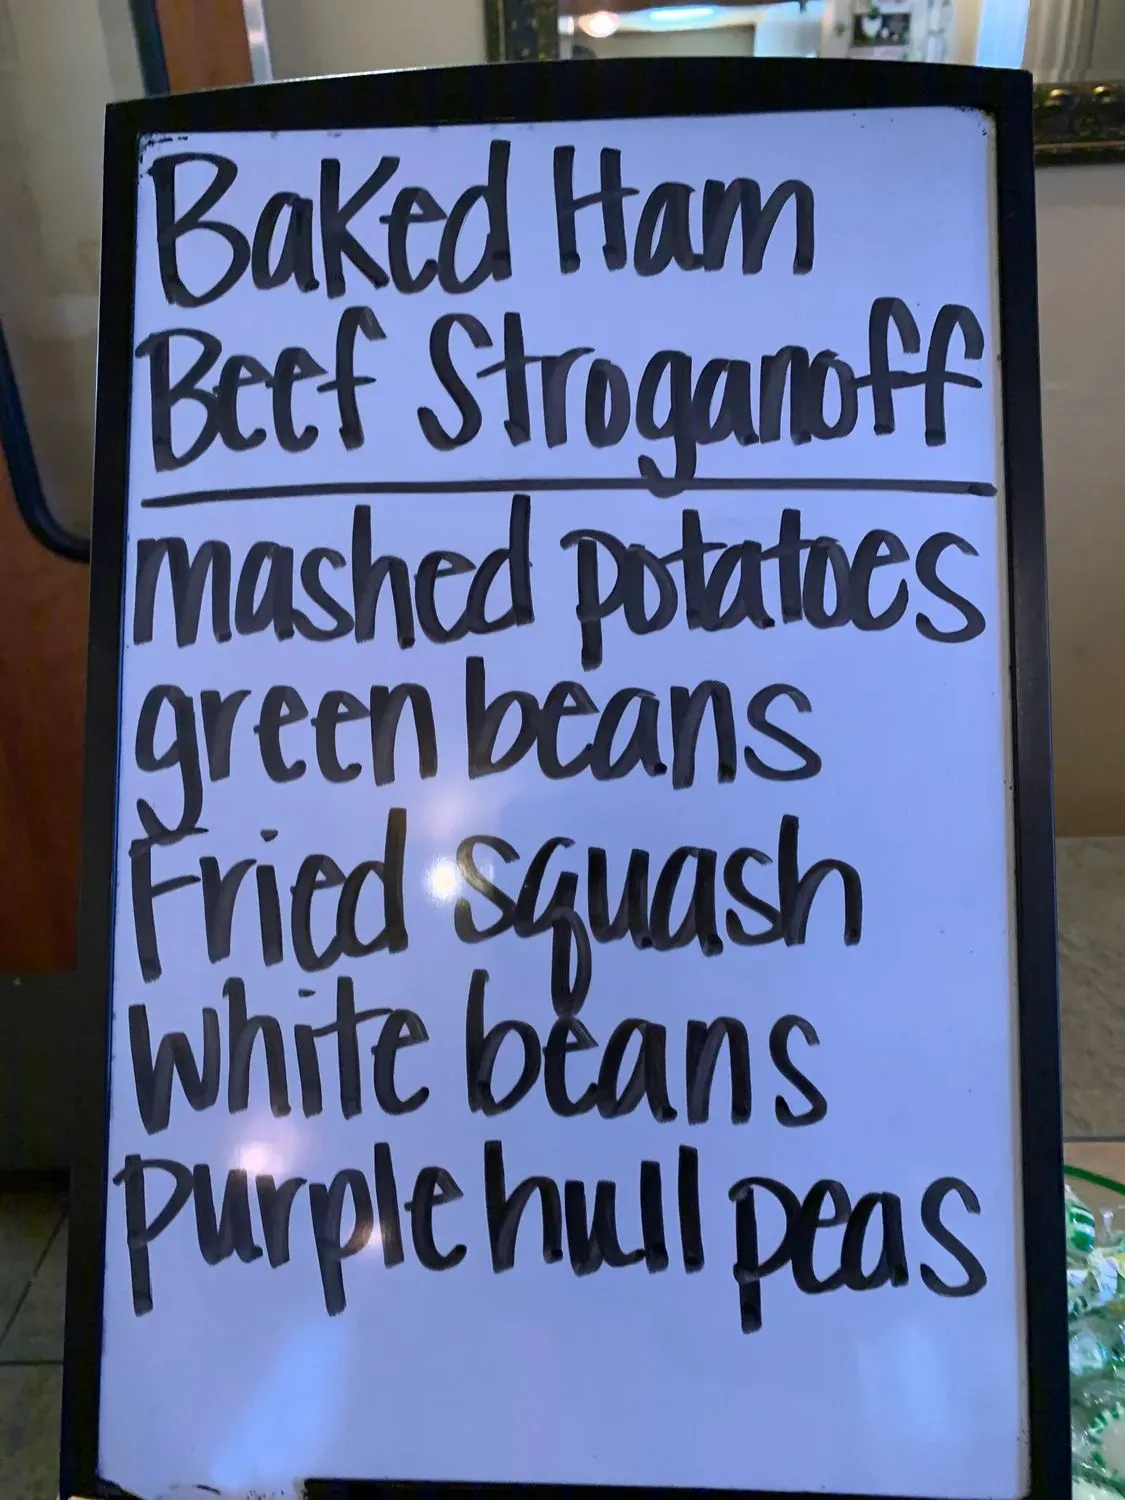 Baked Ham
Beef Stroganoff
mashed potatoes
green beans
Fried squash
white beans
purple hull peas